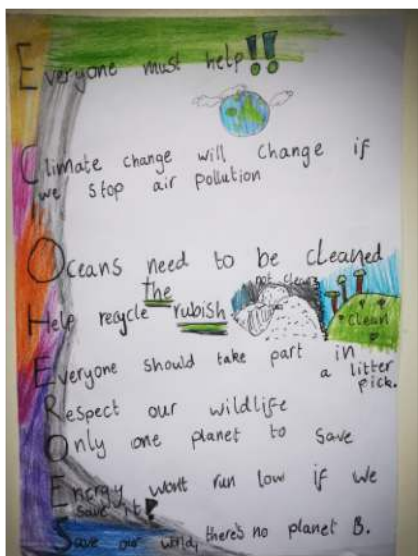 Everyone must help!!
Climate change will change if
we stop air pollution
Oceans need to be cleaned
not clean
the
Help recycle rubish
clean
Everyone should take part in
a litter
pick.
Respect our wildlife
Only one planet to save
Energy wont run low if we
save it!
Save our world, there's no planet B.